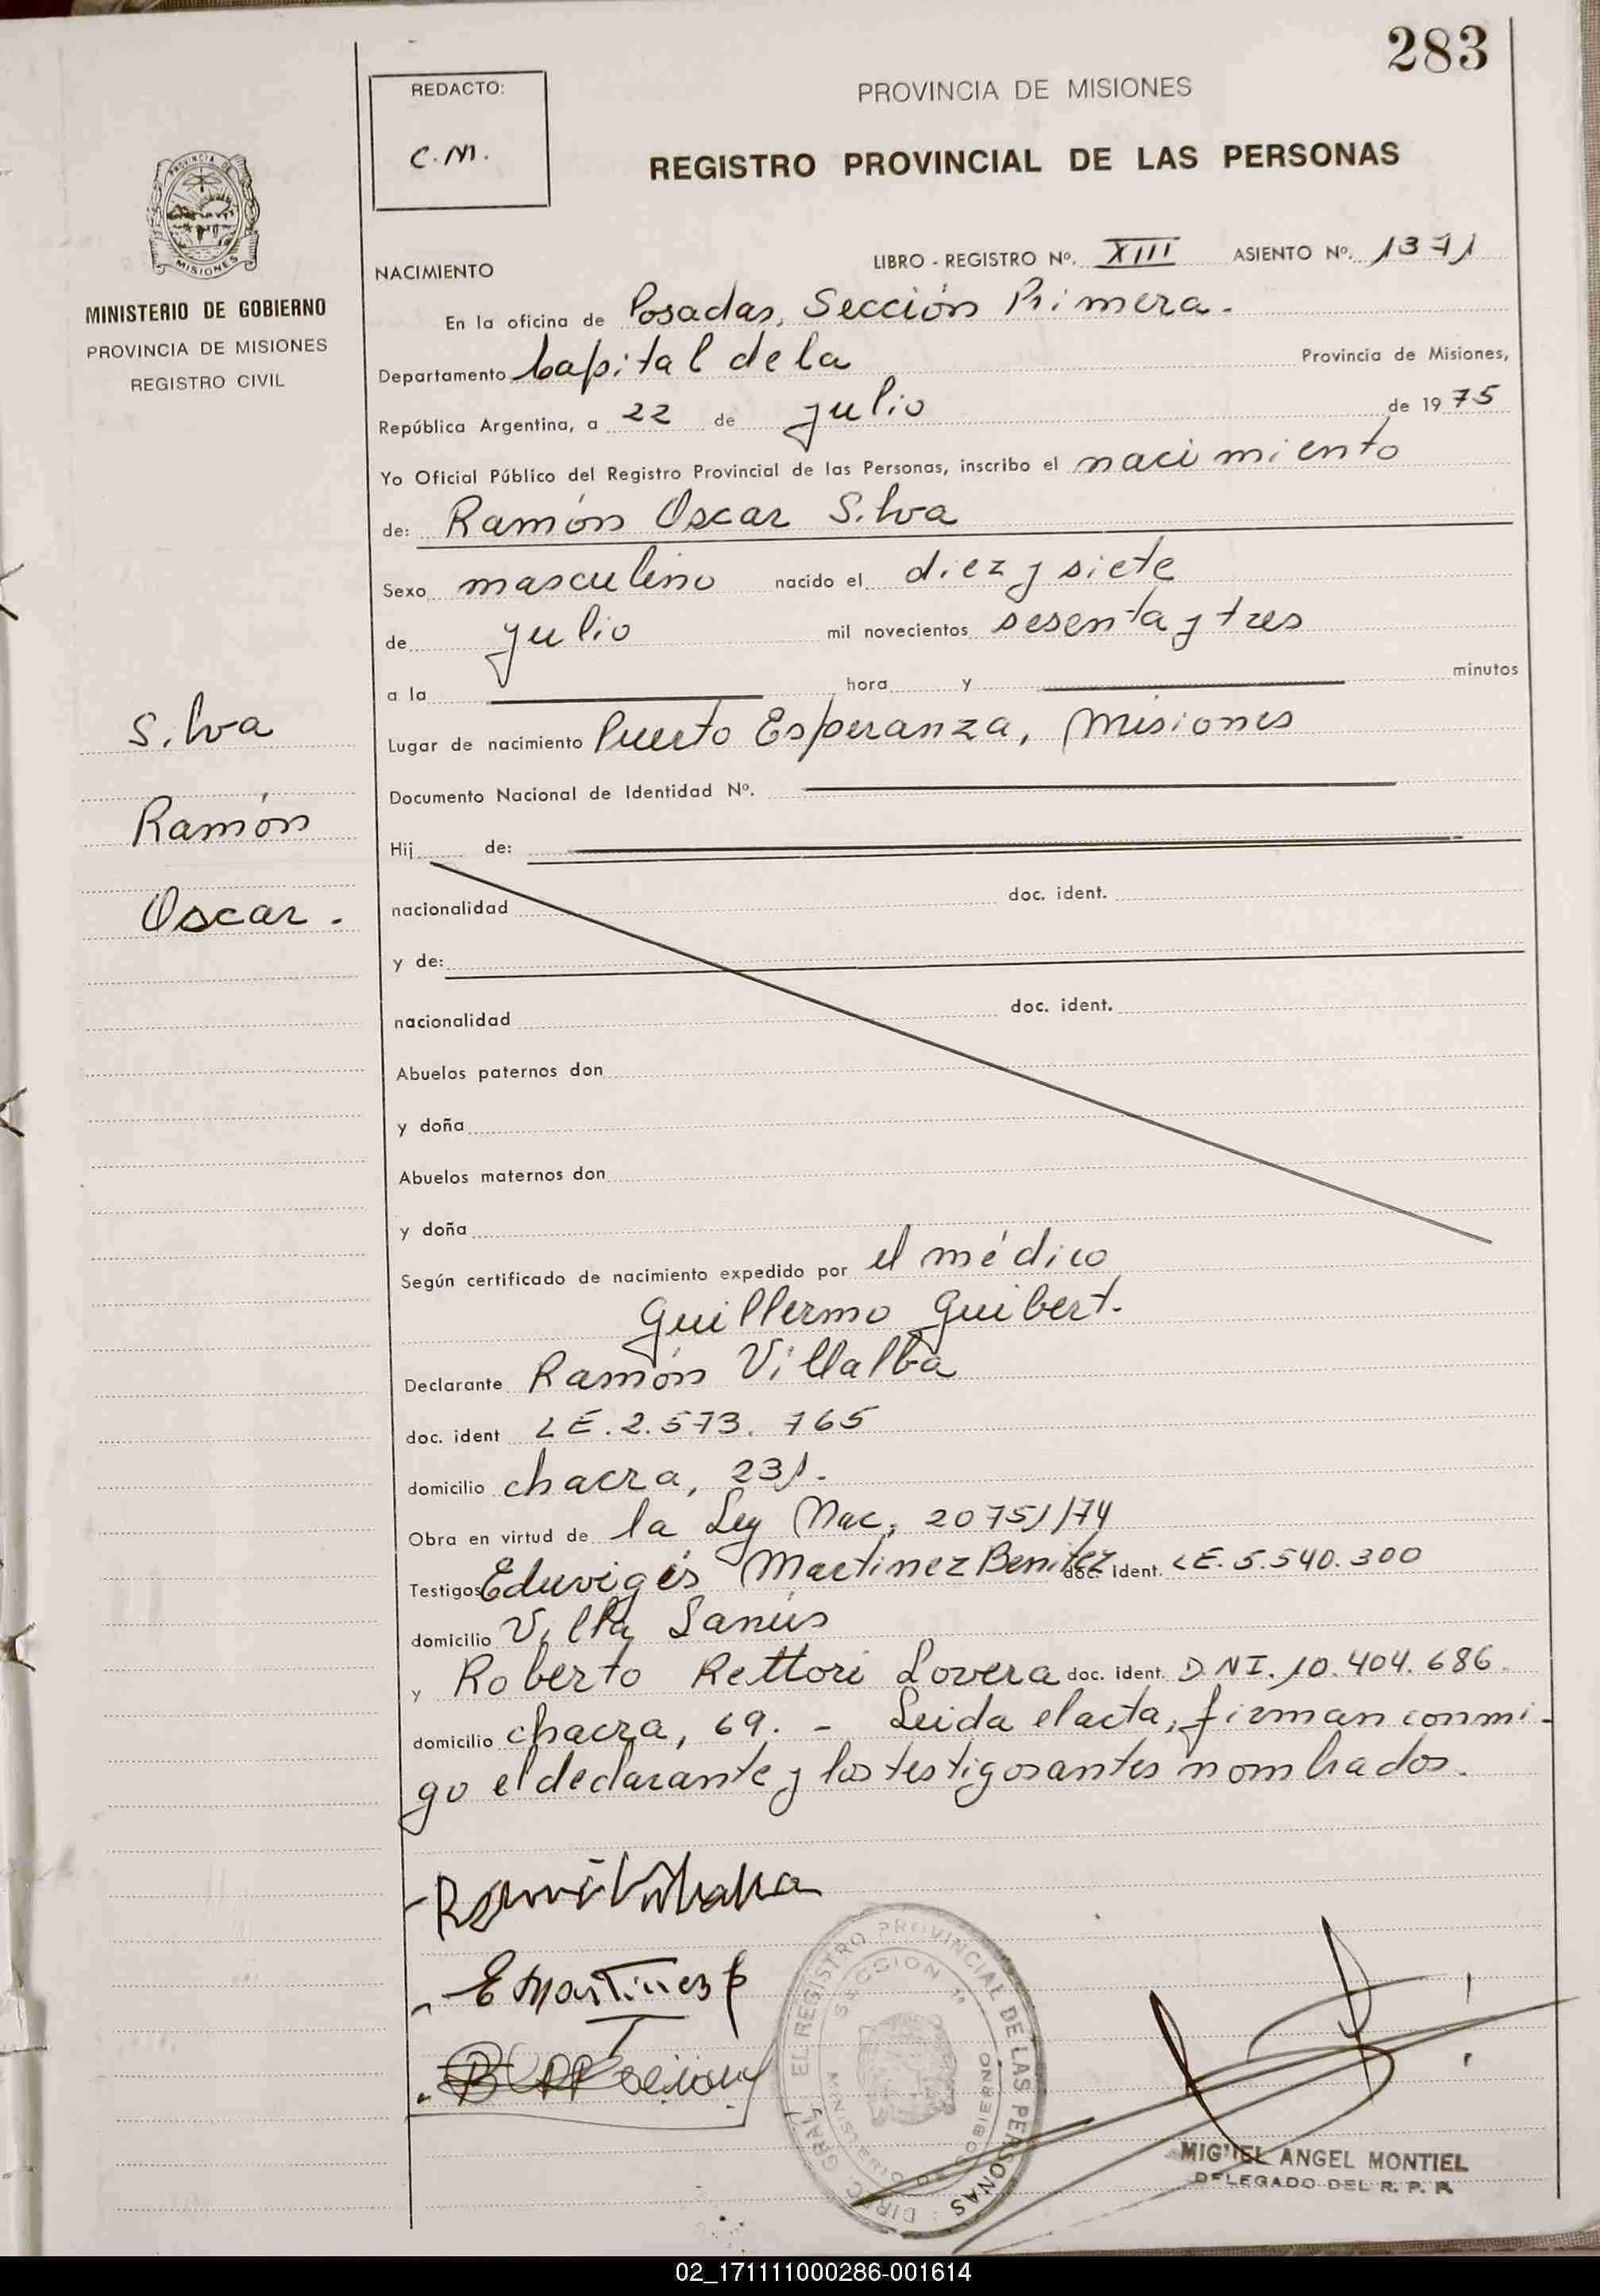 283
REDACTO:
C.M.
PROVINCIA DE MISIONES
REGISTRO PROVINCIAL DE LAS PERSONAS
PROVINCIA DE
MISIONES
MINISTERIO DE GOBIERNO
PROVINCIA DE MISIONES
REGISTRO CIVIL
NACIMIENTO
LIBRO - REGISTRO Nº. XIII ASIENTO Nº. 1371
En la oficina de Posadas, Sección Primera.
Departamento Capital de la Provincia de Misiones,
República Argentina, a 22 de julio de 1975
Yo Oficial Público del Registro Provincial de las Personas, inscribo el nacimiento
de: Ramón Oscar Silva
Sexo masculino nacido el diez y siete
de julio mil novecientos sesenta y tres
a la hora y minutos
Lugar de nacimiento Puerto Esperanza, Misiones
Documento Nacional de Identidad Nº.
Hij de:
nacionalidad doc. ident.
y de:
nacionalidad doc. ident.
Abuelos paternos don
y doña
Abuelos maternos don
y doña
Según certificado de nacimiento expedido por el médico
Guillermo Guibert.
Declarante Ramón Villalba
doc. ident LE. 2.573.765
domicilio chacra, 231.
Obra en virtud de la Ley Nac. 20751/74
Testigos Eduvigés Martinez Benitez doc. ident. LE. 5.540.300
domicilio Villa Lanús
y Roberto Rettori Lovera doc. ident. D.NI. 10.404.686.
domicilio chacra, 69. - Leida el acta, firman conmi-
go el declarante y los testigos antes nombrados.
Silva
Ramón
Oscar.
Ramón Villalba
E Martinez
DIREC. GRAL. EL REGISTRO PROVINCIAL DE LAS PERSONAS
SECCION 1ª
MINISTERIO DE GOBIERNO
MIGUEL ANGEL MONTIEL
DELEGADO DEL R. P. P.
02_171111000286-001614